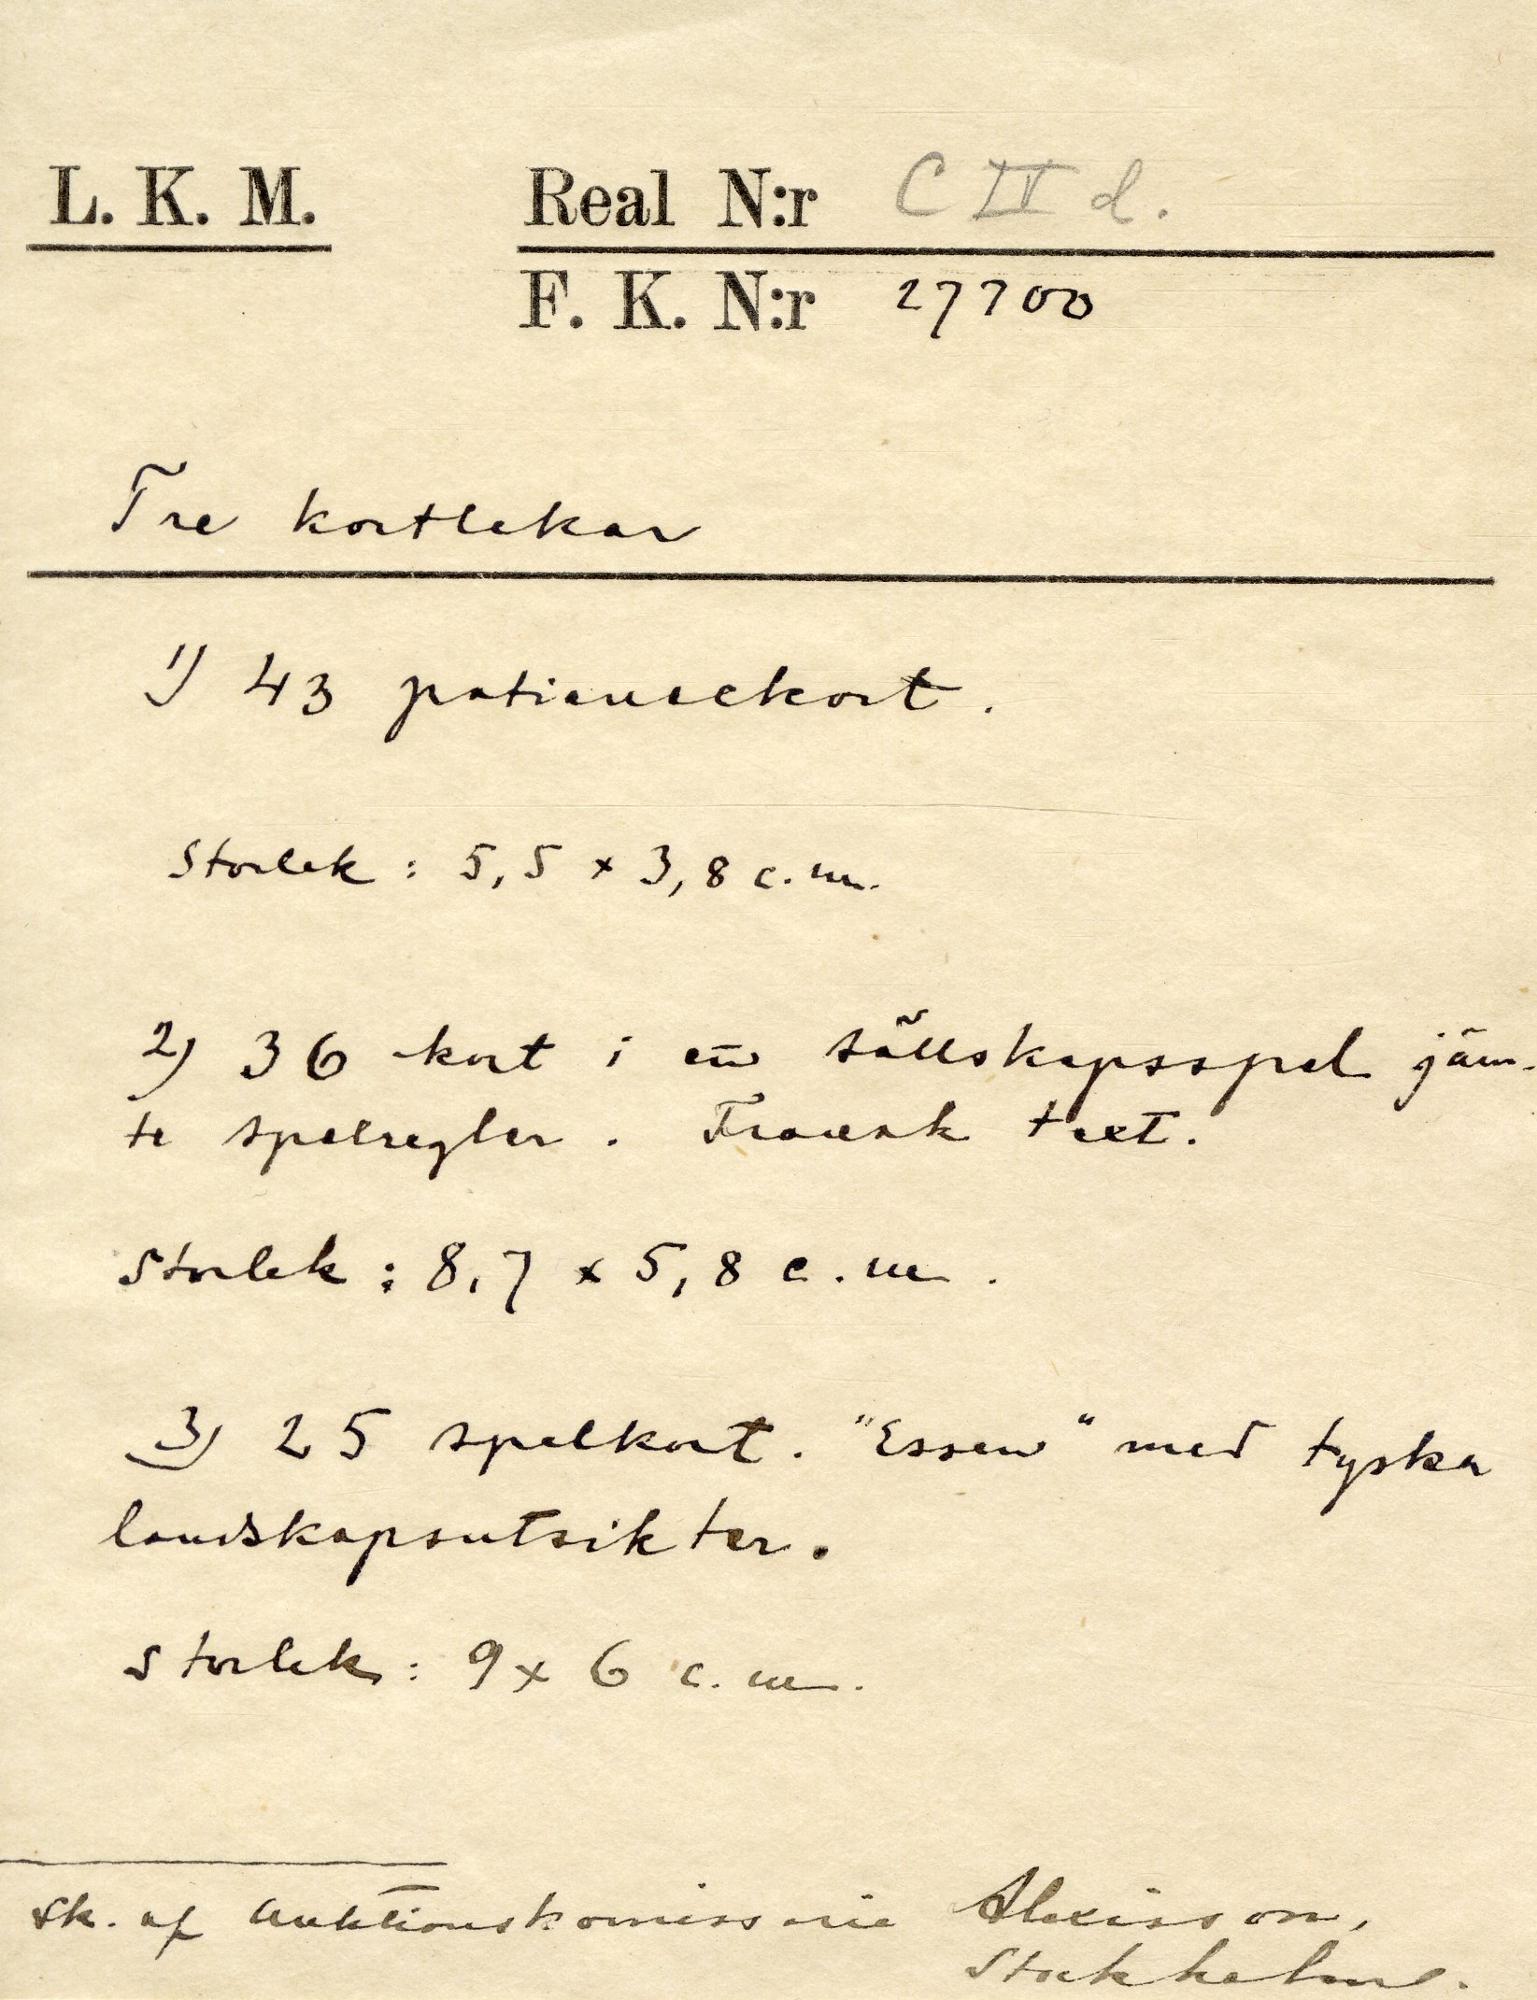 L. K. M. Real N:r C II d.
F. K. N:r 27700
Tre kortlekar
1) 43 patiencekort.
Storlek : 5,5 x 3,8 c.m.
2) 36 kort i ett sällskapsspel jäm-
te spelregler. Fransk text.
Storlek : 8,7 x 5,8 c.m.
3) 25 spelkort. "Essen" med tyska
landskapsutsikter.
Storlek : 9 x 6 c.m.
Sk. af Auktionskomissarie Alexisson,
Stockholm.